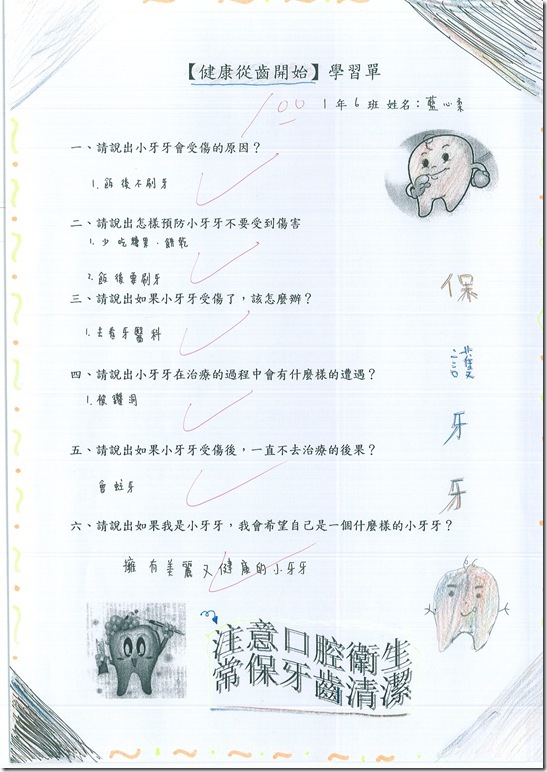 【健康從齒開始】學習單
100
1年6班 姓名：藍心柔
一、請說出小牙牙會受傷的原因？
1.飯後不刷牙
二、請說出怎樣預防小牙牙不要受到傷害
1.少吃糖果、餅乾
2.飯後要刷牙
三、請說出如果小牙牙受傷了，該怎麼辦？
1.去看牙醫科
四、請說出小牙牙在治療的過程中會有什麼樣的遭遇？
1.候鑽洞
五、請說出如果小牙牙受傷後，一直不去治療的後果？
會蛀牙
六、請說出如果我是小牙牙，我會希望自己是一個什麼樣的小牙牙？
擁有美麗又健康的小牙牙
保
護
牙
牙
注意口腔衛生
常保牙齒清潔